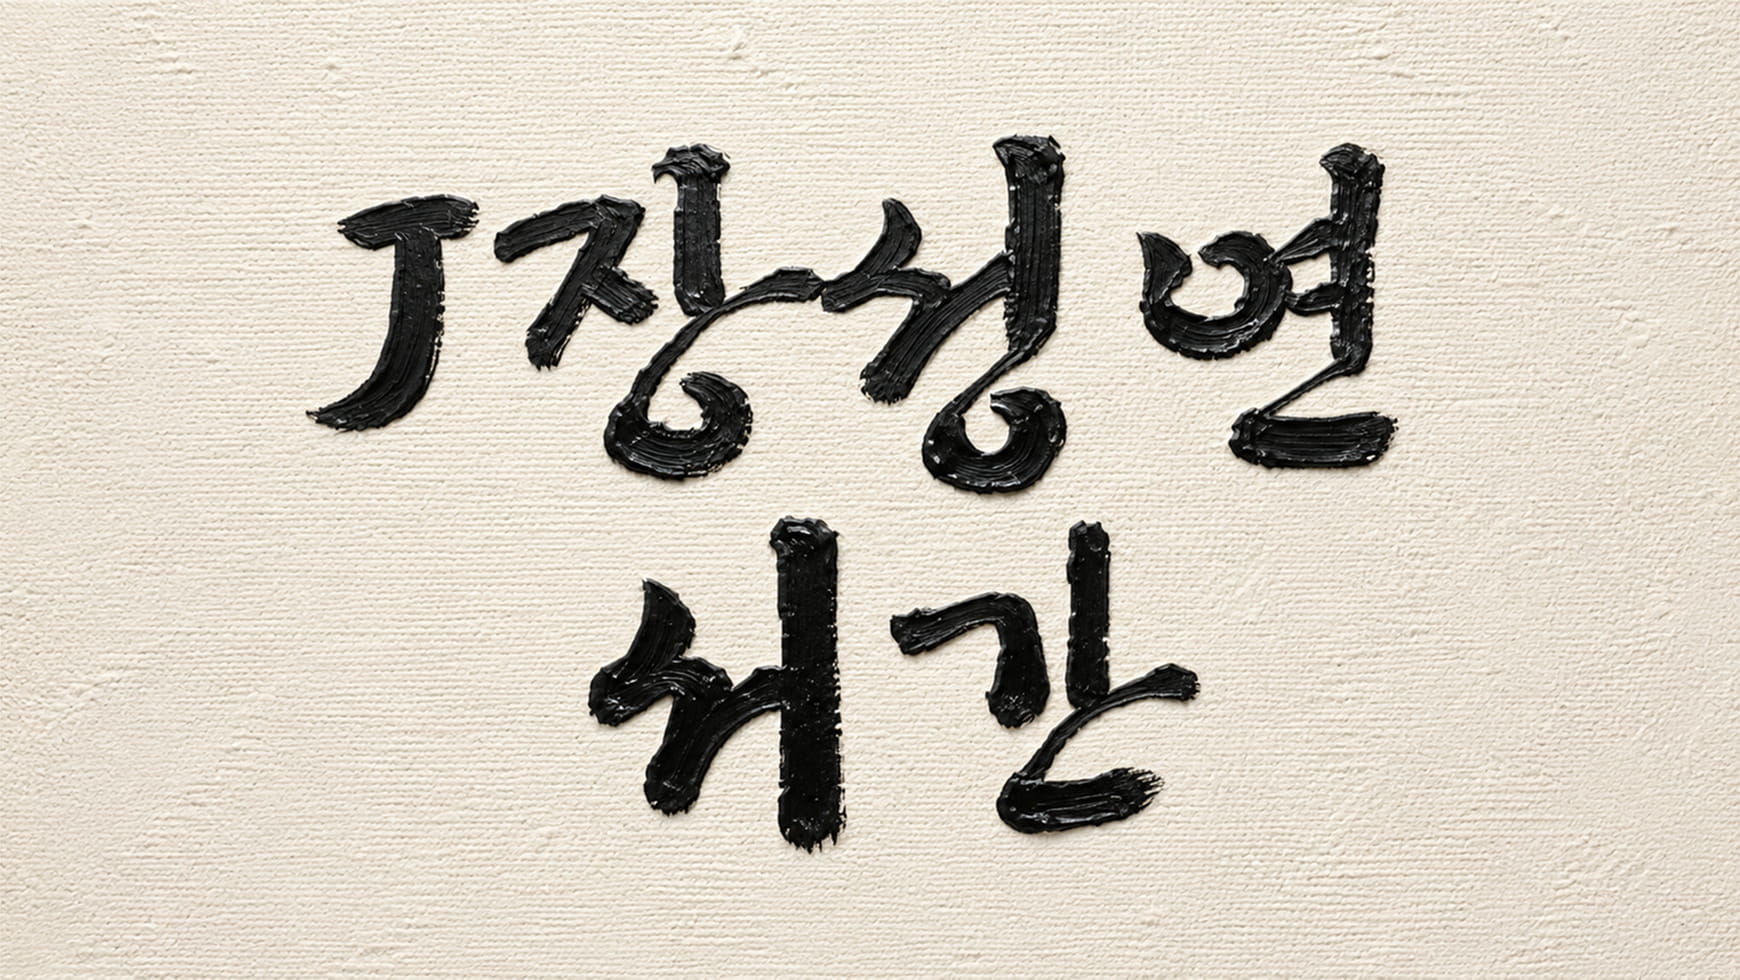 J장성연
서간